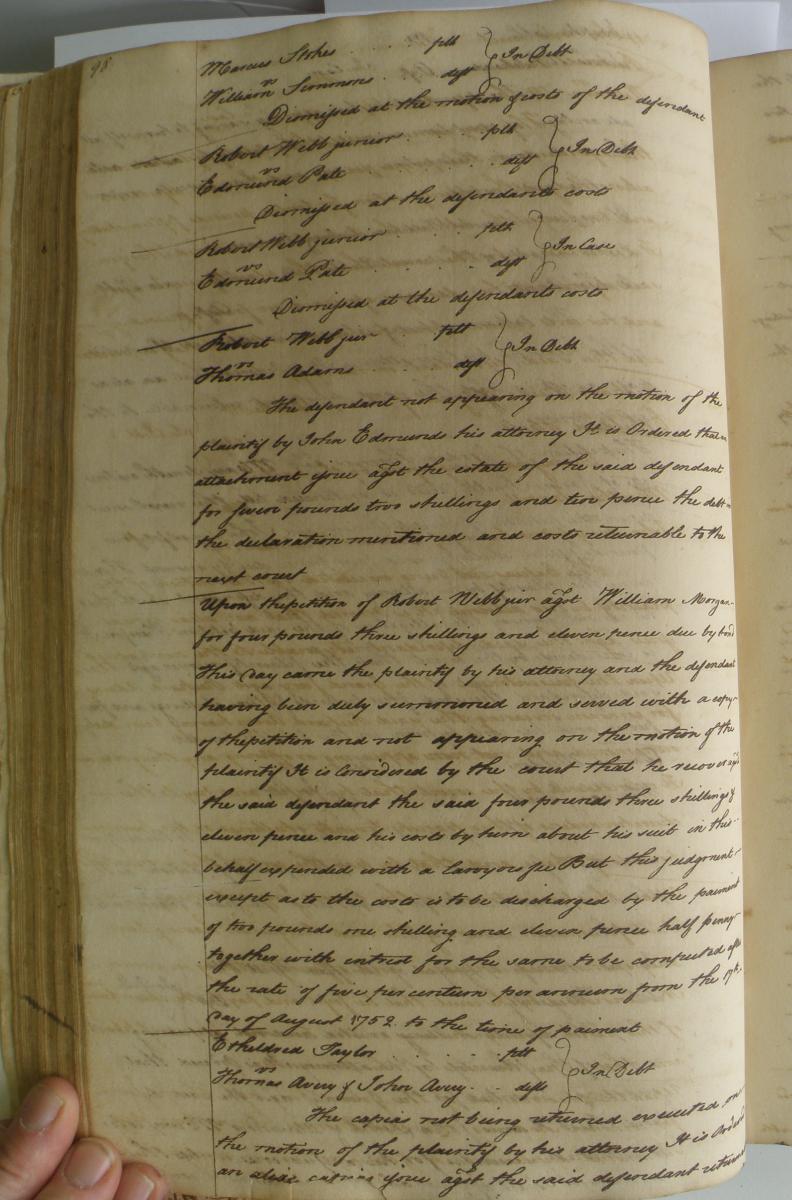 98
Marcus Stokes . . . . plt
vs } In Debt
William Simmons . . . . deft
Dismissed at the motion & costs of the defendant
Robert Webb junior . . . . plt
vs } In Debt
Edmund Pate . . . . deft
Dismissed at the defendants costs
Robert Webb junior . . . plt
vs } In Case
Edmund Pate . . . . deft
Dismissed at the defendants costs
Robert Webb jur . . plt
vs } In Debt
Thomas Adams . . . . deft
The defendant not appearing on the motion of the
plaintif by John Edmunds his attorney It is Ordered that an
attachment issue agst the estate of the said defendant
for seven pounds two shillings and two pence the debt in
the declaration mentioned and costs returnable to the
next court
Upon the petition of Robert Webb jur agst William Morgan
for four pounds three shillings and eleven pence due by bond
This day came the plaintif by his attorney and the defendant
having been duly summoned and served with a copy
of the petition and not appearing on the motion of the
plaintif It is Considered by the court that he recover agst
the said defendant the said four pounds three shillings &
eleven pence and his costs by him about his suit in this
behalf expended with a lawyers fee But this judgment
except as to the costs is to be discharged by the paiment
of two pounds one shilling and eleven pence half penny
together with intrest for the same to be computed after
the rate of five per centum per annum from the 17th
day of August 1752 to the time of paiment
Etheldred Taylor . . . . plt
vs } In Debt
Thomas Avery & John Avery . . defts
The capias not being returned executed on
the motion of the plaintif by his attorney It is Ordered
an alias capias issue agst the said defendant